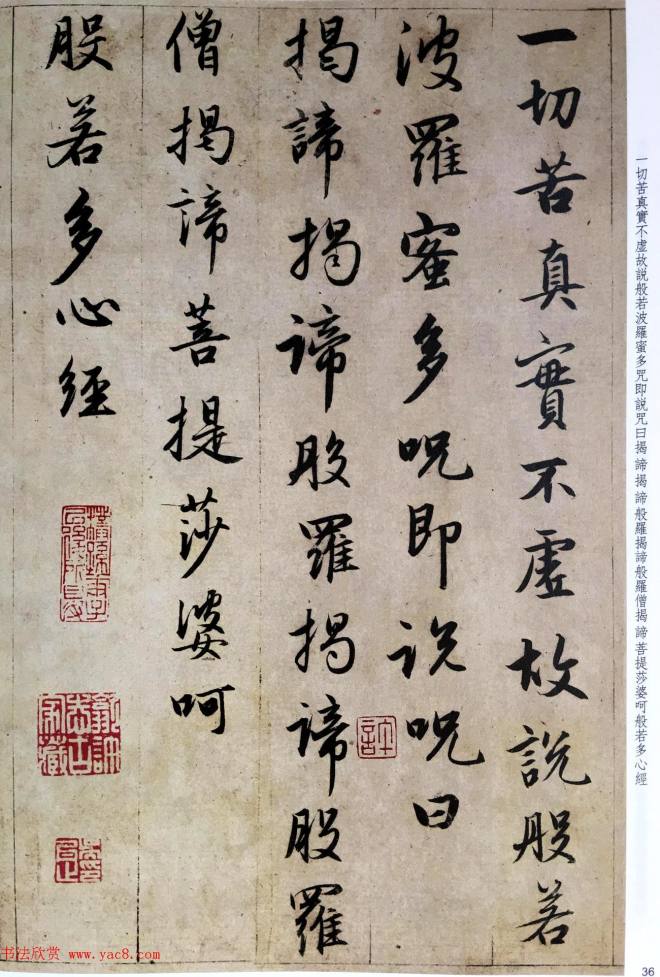 一切苦真實不虛故説般若波羅蜜多咒即説咒曰揭諦揭諦般羅揭諦般羅僧揭諦菩提莎婆呵般若多心經
一切苦真實不虛故說般若
波羅蜜多呪即说呪曰
揭諦揭諦般羅揭諦般羅
僧揭諦菩提莎婆呵
般若多心經
书法欣赏 www.yac8.com
36